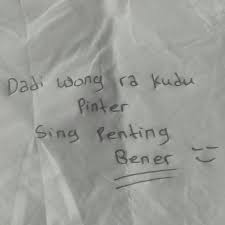 Dadi wong ra kudu
Pinter
Sing Penting
Bener